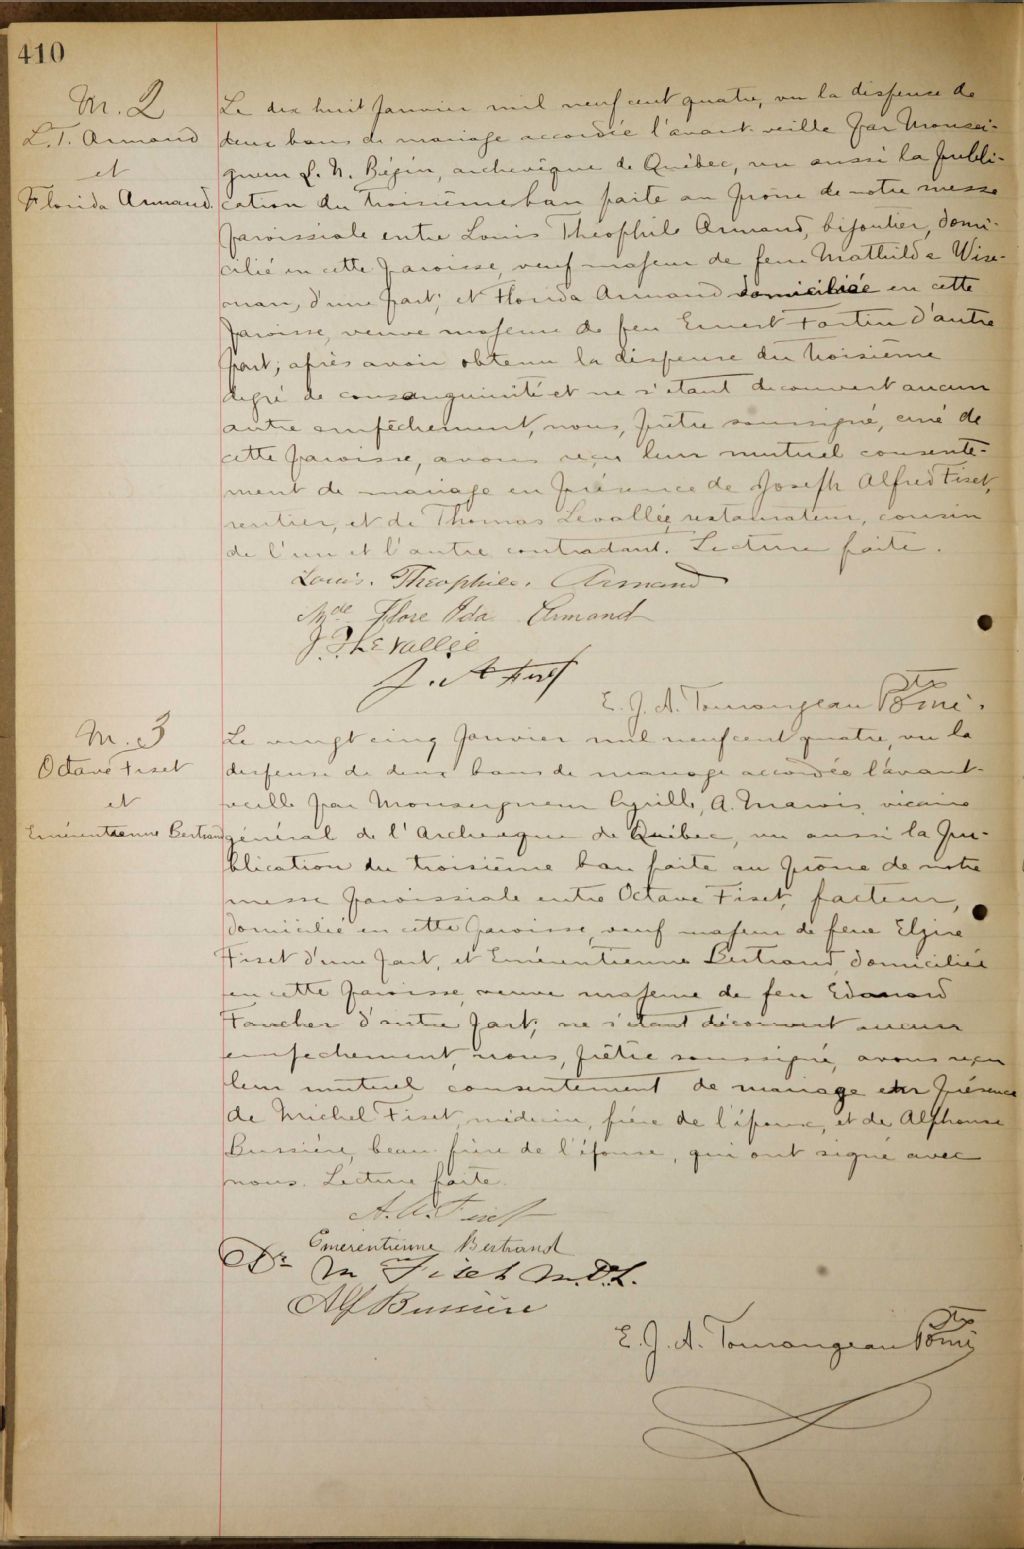 410
M. 2
L. T. Armand
et
Florida Armand.
Le dix huit Janvier mil neuf cent quatre, vu la dispense de
deux bans de mariage accordée l'avant-veille par Monsei-
gneur L. N. Bégin, archevêque de Québec, vu aussi la publi-
cation du troisième ban faite au prône de notre messe
paroissiale entre Louis Théophile Armand, bijoutier, domi-
cilié en cette paroisse, veuf majeur de feue Mathilde Wise-
man, d'une part; et Florida Armand domiciliée en cette
paroisse, veuve majeure de feu Ernest Fortin d'autre
part; après avoir obtenu la dispense du troisième
degré de consanguinité et ne s'étant découvert aucun
autre empêchement, nous, prêtre soussigné, curé de
cette paroisse, avons reçu leur mutuel consente-
ment de mariage en présence de Joseph Alfred Fiset,
rentier, et de Thomas Levallée, restaurateur, cousin
de l'un et l'autre contractant. Lecture faite.
Louis. Théophile. Armand
Mde Flore Ida Armand
J. T. Levallée
J. A. Fiset
E. J. A. Tourangeau Ptre
M. 3
Octave Fiset
et
Emérentienne Bertrand
Le vingt cinq Janvier mil neuf cent quatre, vu la
dispense de deux bans de mariage accordée l'avant-
veille par Monseigneur Cyrille, A. Marois, vicaire
général de l'Archevêque de Québec, vu aussi la pu-
blication du troisième ban faite au prône de notre
messe paroissiale entre Octave Fiset, facteur,
domicilié en cette paroisse, veuf majeur de feue Elzire
Fiset d'une part, et Emérentienne Bertrand, domiciliée
en cette paroisse, veuve majeure de feu Edouard
Faucher d'autre part; ne s'étant découvert aucun
empêchement, nous, prêtre soussigné, avons reçu
leur mutuel consentement de mariage en présence
de Michel Fiset, médecin, frère de l'époux, et de Alphonse
Bussière, beau-frère de l'épouse, qui ont signé avec
nous. Lecture faite.
Fiset
Emerentienne Bertrand
Dr M Fiset M.D.L.
Alf Bussière
E. J. A. Tourangeau Ptre